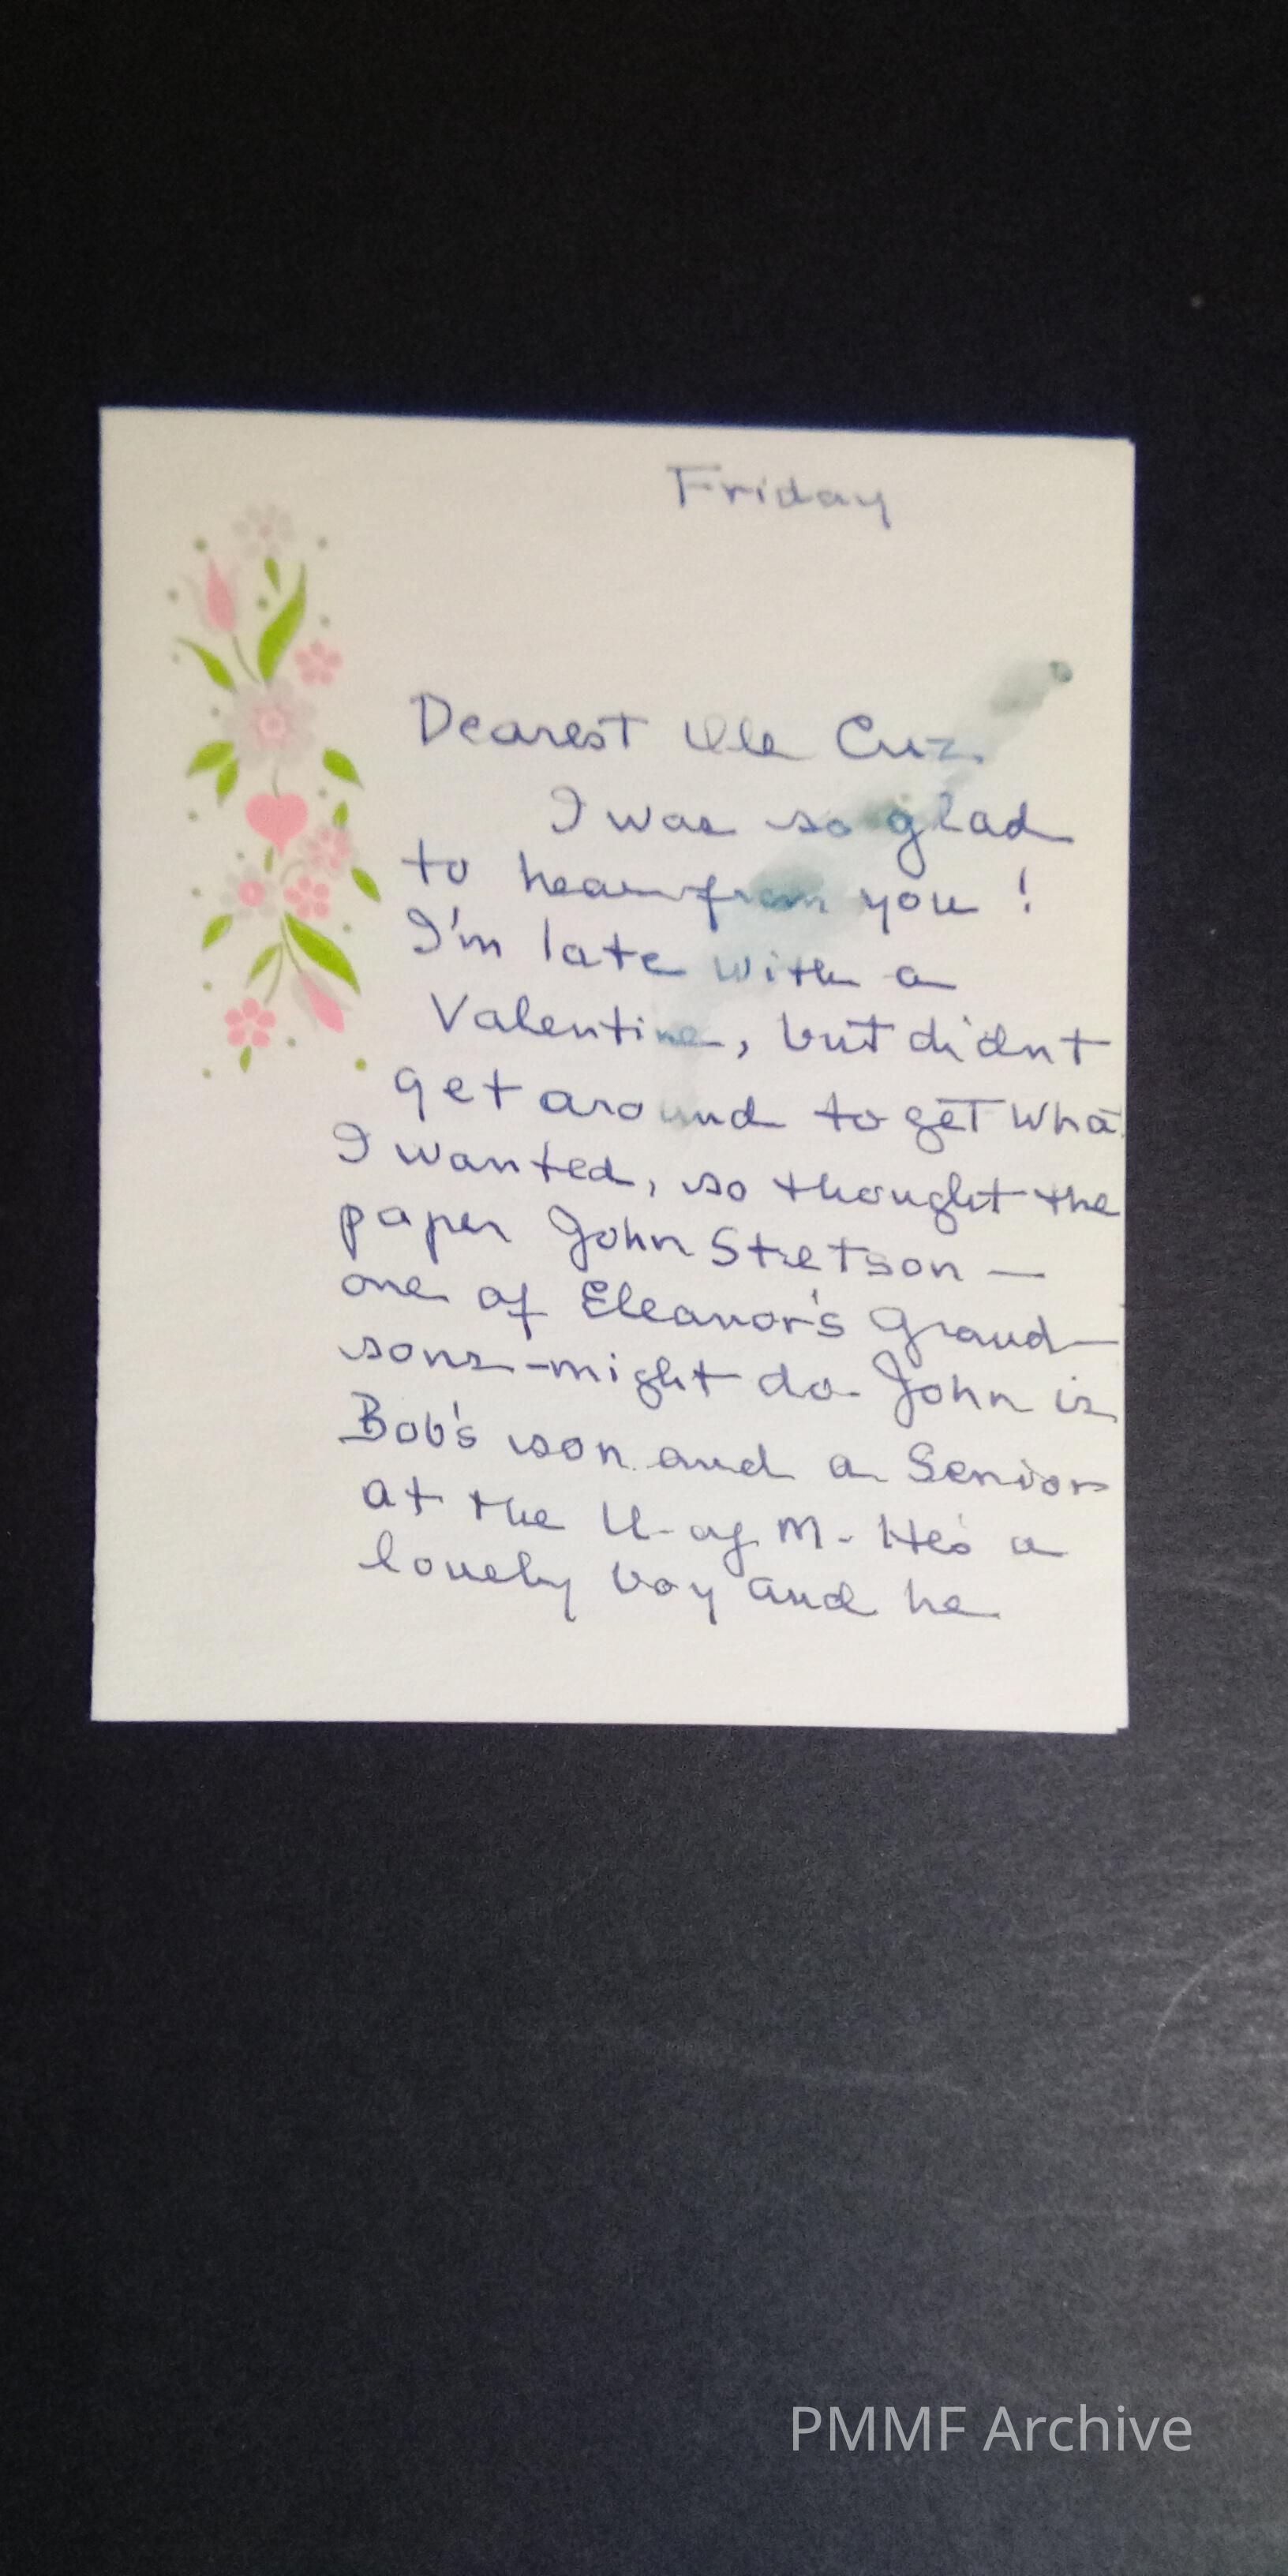 Friday
Dearest Ole Cuz.
I was so glad
to hear from you !
I'm late with a
Valentine, but didn't
get around to get wha
I wanted, so thought the
paper John Stetson —
one of Eleanor's Grand-
sons - might do. John is
Bob's son and a Senior
at the U. of M. He's a
lovely boy and he
PMMF Archive